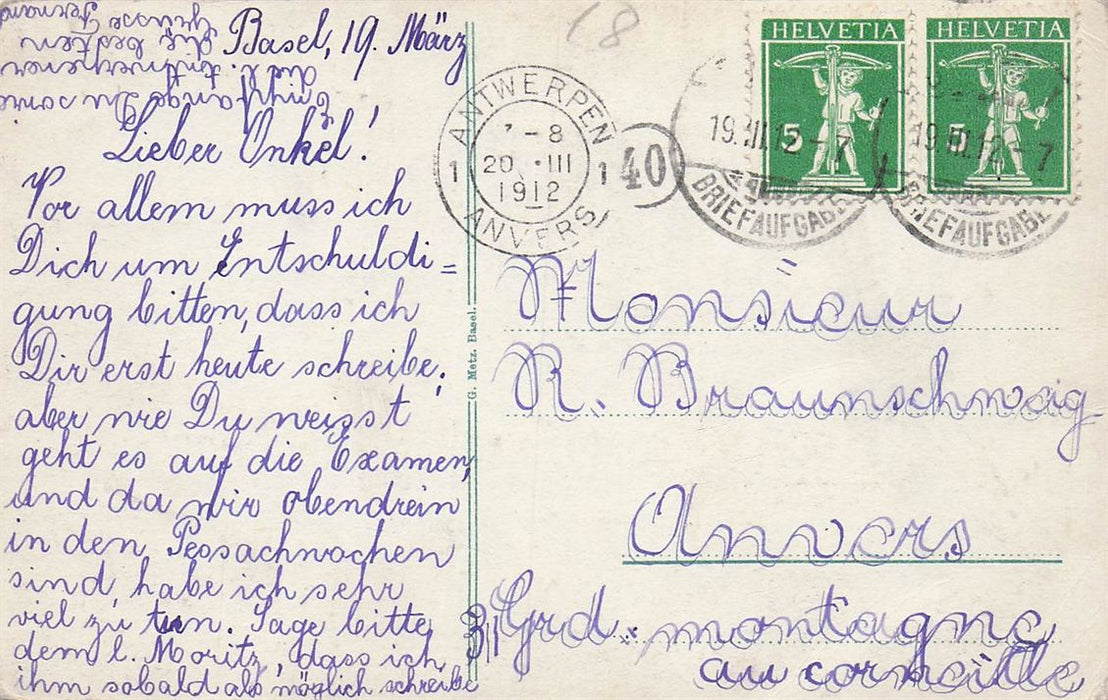 Basel, 19. März
Lieber Onkel!
Vor allem muss ich
Dich um Entschuldi=
gung bitten, dass ich
Dir erst heute schreibe;
aber wie Du weisst
geht es auf die Examen,
und da wir obendrein
in den Pessachwochen
sind, habe ich sehr
viel zu tun. Sage bitte
dem l. Moritz, dass ich
ihm sobald als möglich schreibe
Empfange Du sowie
die l. Antwerpener
die besten
Grüsse Fernand
G. Metz, Basel.
18
HELVETIA
5
HELVETIA
5
ANTWERPEN
1 7-8 1
20 III
1912
ANVERS
40
19.III.12-7
BRIEFAUFGABE
19.III.12-7
BRIEFAUFGABE
Monsieur
R. Braunschweig
Anvers
31 Grd. montagne
au corneille